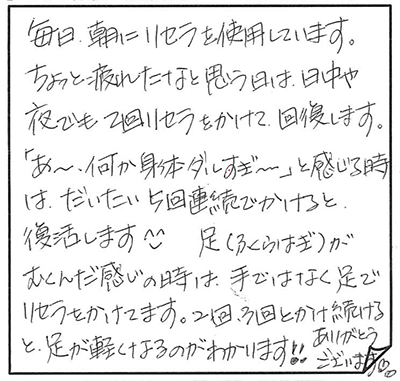 毎日、朝にリセラを使用しています。
ちょっと疲れたなと思う日は、日中や
夜でも2回リセラをかけて、回復します。
「あ〜、何か身体ダルすぎ〜」と感じる時
は、だいたい5回連続でかけると、
復活します 足(ふくらはぎ)が
むくんだ感じの時は、手ではなく足で
リセラをかけてます。2回、3回とかけ続ける
と、足が軽くなるのがわかります!!
ありがとう
ございます